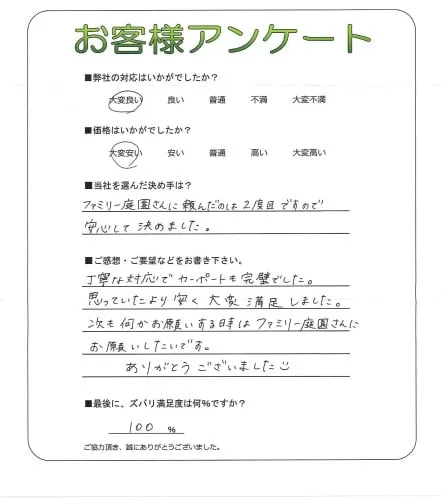 お客様アンケート
■弊社の対応はいかがでしたか?
大変良い 良い 普通 不満 大変不満
■価格はいかがでしたか?
大変安い 安い 普通 高い 大変高い
■当社を選んだ決め手は?
ファミリー庭園さんに頼んだのは2度目ですので
安心して決めました。
■ご感想・ご要望などをお書き下さい。
丁寧な対応でカーポートも完璧でした。
思っていたより安く大変満足しました。
次も何かお願いする時はファミリー庭園さんに
お願いしたいです。
ありがとうございました☺
■最後に、ズバリ満足度は何%ですか?
100 %
ご協力頂き、誠にありがとうございました。